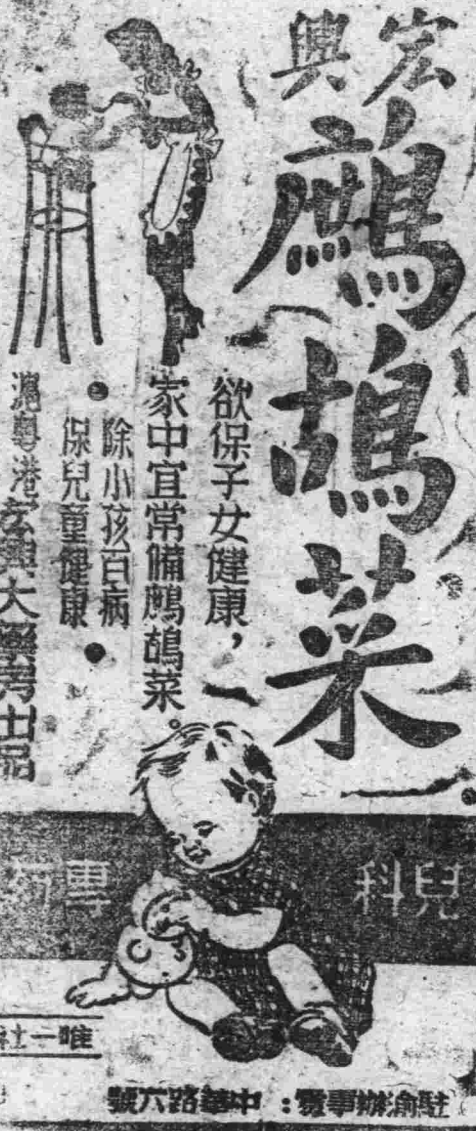 宏興
鷓鴣菜
欲保子女健康，
家中宜常備鷓鴣菜。
● 除小孩百病
保兒童健康 ●
滬粵港宏興大藥房出品
兒科專药
唯一
駐渝辦事處：中華路六號